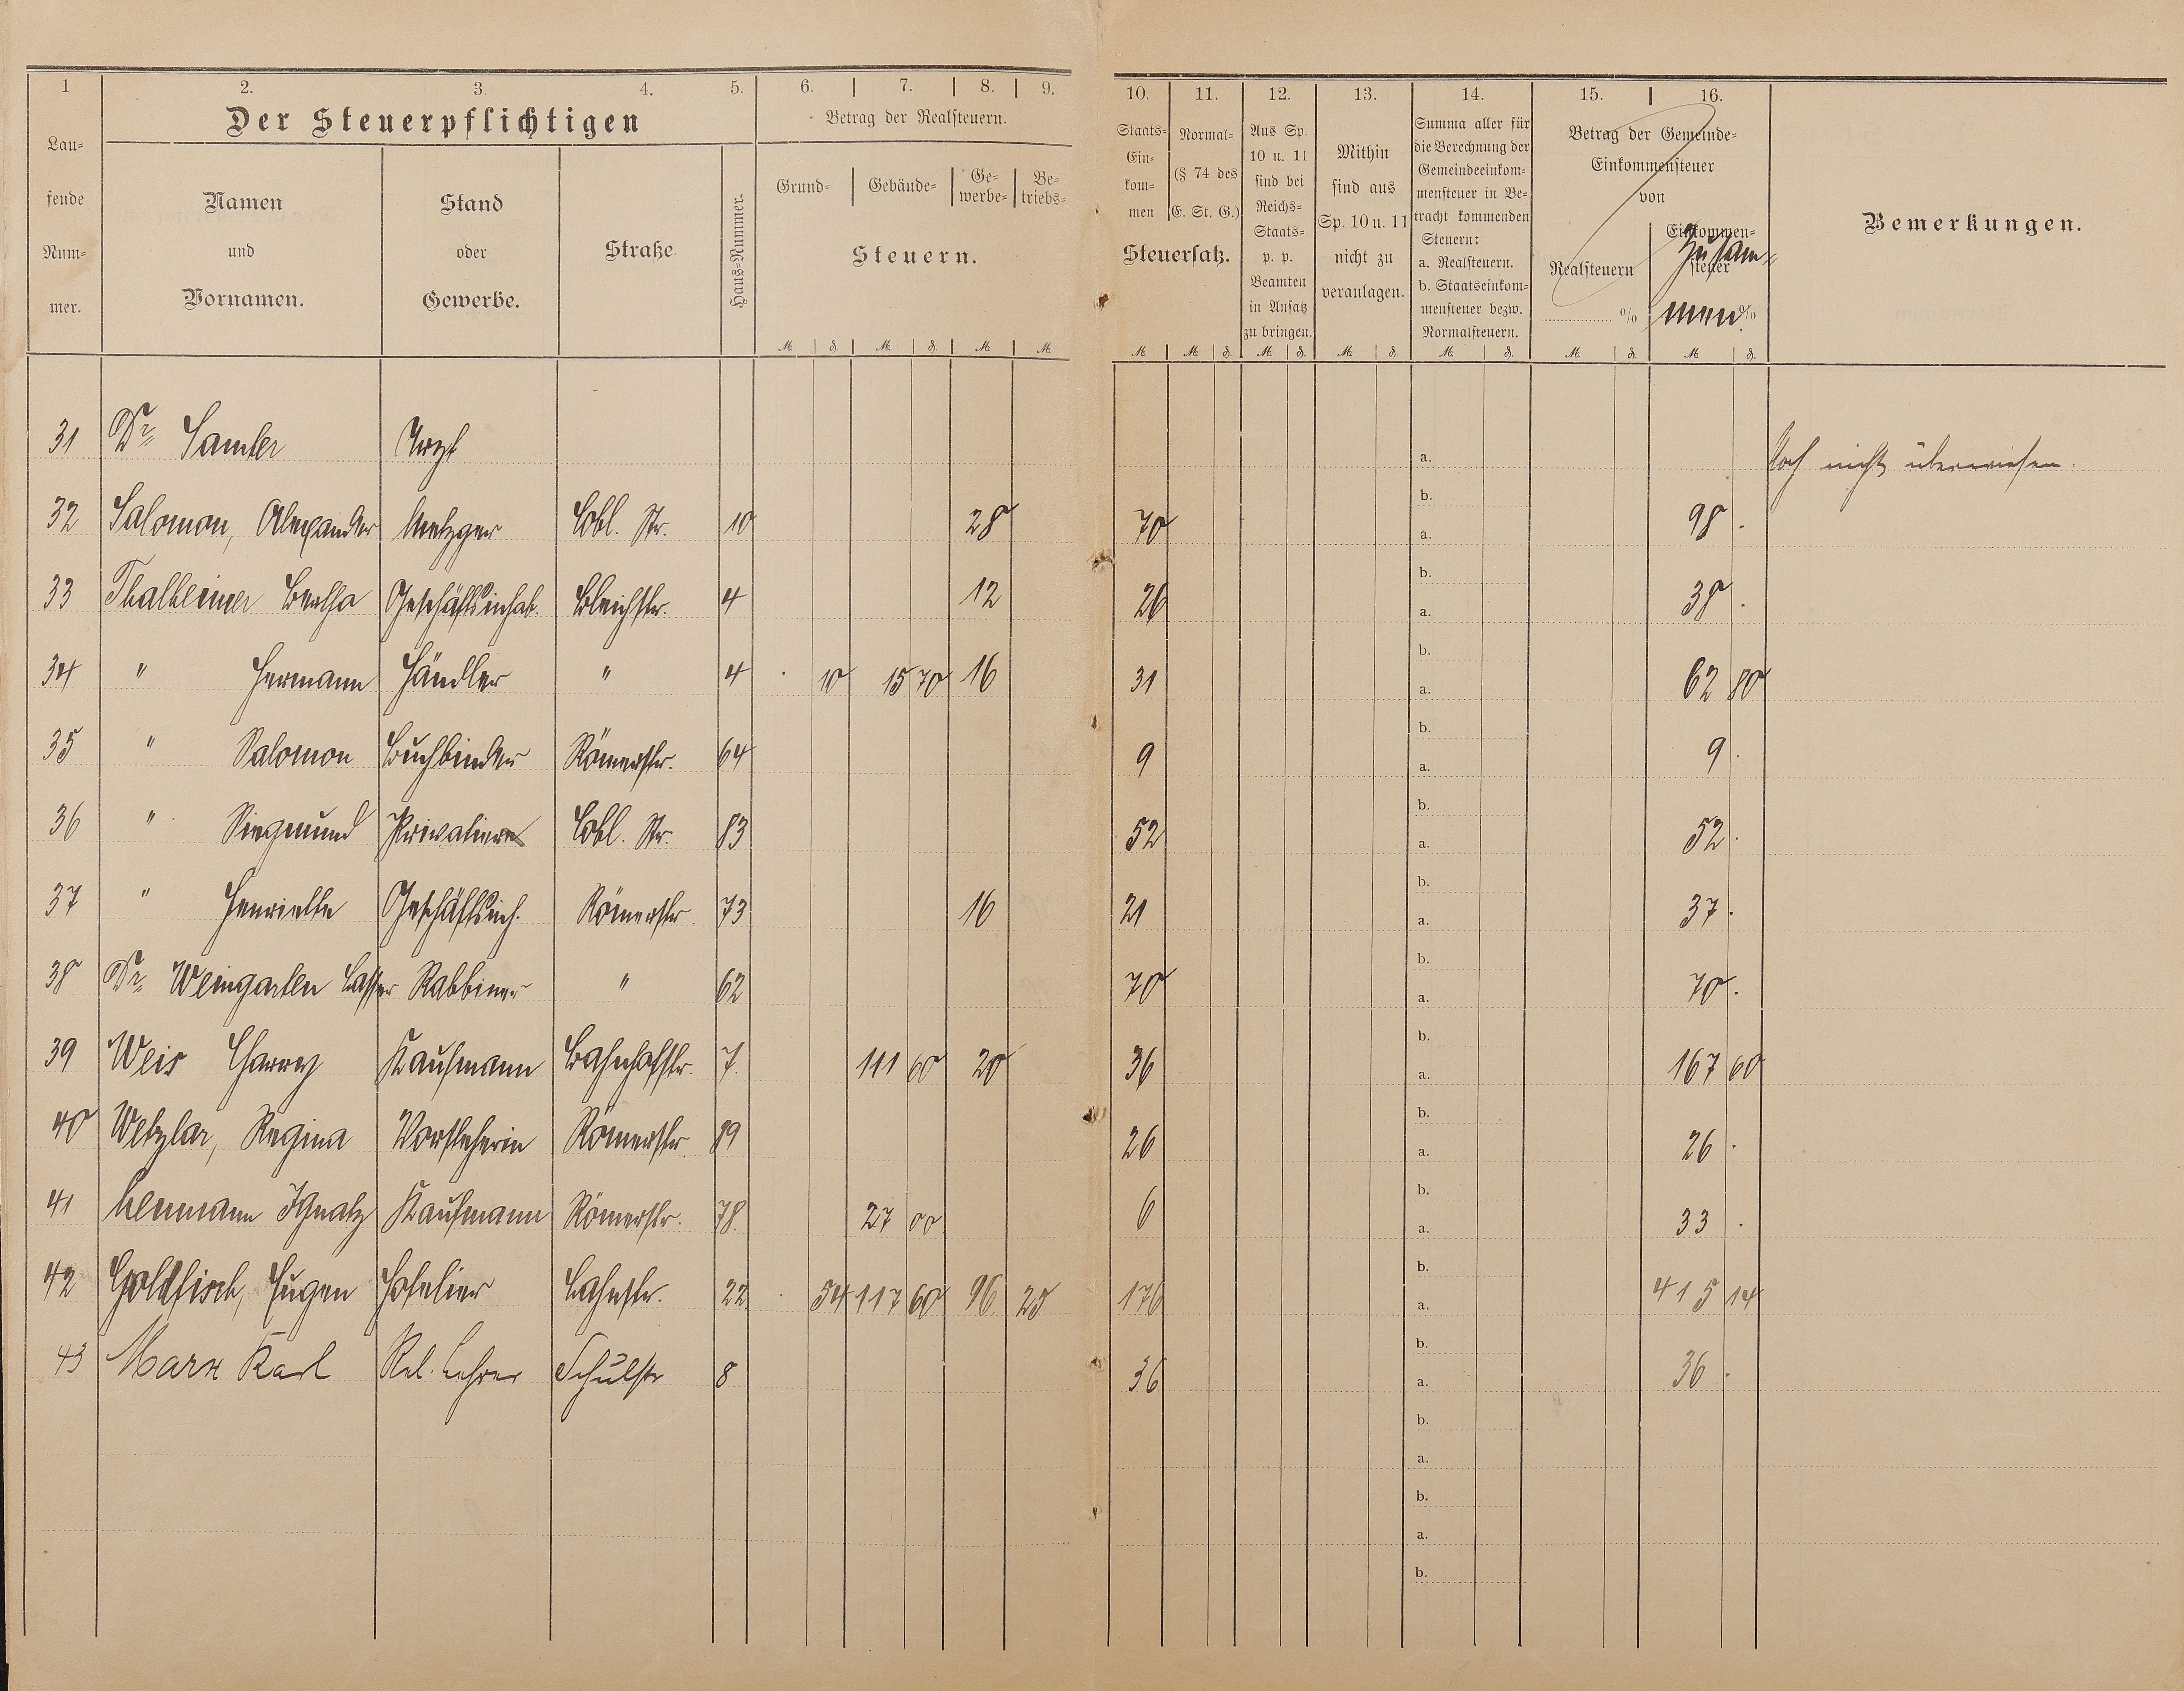 1 2. 3. 4. 5. 6. 7. 8. 9.
Der Steuerpflichtigen
Betrag der Realsteuern.
Lau-
fende
Num-
mer.
Namen
und
Vornamen.
Stand
oder
Gewerbe.
Straße
Haus-Nummer.
Grund- Gebäude- Ge-werbe- Be-triebs-
Steuern.
M. ₰. M. ₰. M. M.
10. 11. 12. 13. 14. 15. 16.
Staats-
Ein-
kom-
men
Normal-
(§ 74 des
E. St. G.)
Steuersatz.
Aus Sp.
10 u. 11
sind bei
Reichs-
Staats-
p. p.
Beamten
in Ansatz
zu bringen.
Mithin
sind aus
Sp. 10 u. 11
nicht zu
veranlagen.
Summa aller für
die Berechnung der
Gemeindeeinkom-
mensteuer in Be-
tracht kommenden
Steuern:
a. Realsteuern.
b. Staatseinkom-
mensteuer bezw.
Normalsteuern.
Betrag der Gemeinde-
Einkommensteuer
von
Realsteuern
%
Einkommen-
steuer
%
Zusam-
men
Bemerkungen.
M. M. ₰. M. ₰. M. ₰. M. ₰. M. ₰. M. ₰.
31 Dr. Samter Arzt a. Noch nicht überwiesen.
b.
32 Salomon, Alexander Metzger Cobl. Str. 10 28 70 a. 98 .
b.
33 Thalheimer Bertha Geschäftsinhab. Bleichstr. 4 12 26 a. 38 .
b.
34 " Hermann Händler " 4 . 10 15 70 16 31 a. 62 80
b.
35 " Salomon Buchbinder Römerstr. 64 9 a. 9 .
b.
36 " Siegmund Cobl. Str. 83 52 a. 52 .
b.
37 " Henriette Geschäftsinh. Römerstr 73 16 21 a. 37 .
b.
38 Dr. Weingarten Lasser Rabbiner " 62 70 a. 70 .
b.
39 Weis Harry Kaufmann Bahnhofstr. 7. 111 60 20 36 a. 167 60
b.
40 Wetzlar, Regina Vorsteherin Römerstr. 89 26 a. 26 .
b.
41 Neumann Ignatz Kaufmann Römerstr. 78. 27 00 6 a. 33 .
b.
42 Goldfisch, Eugen Hotelier Lahnstr. 22 . 54 117 60 96 25 176 a. 415 14
b.
43 Marx Karl Rel. Lehrer Schulstr 8 36 a. 36 .
b.
a.
b.
a.
b.